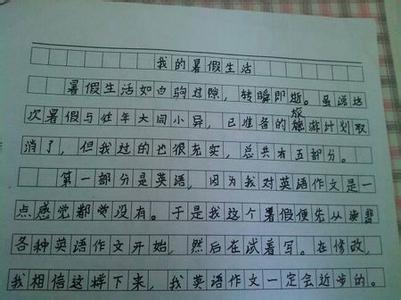 我的暑假生活
暑假生活如白驹过隙，转瞬即逝。虽说这
次暑假与往年大同小异，已准备的旅游计划取
消了，但我过的也很充实，总共有五部分。
第一部分是英语，因为我对英语作文是一
点感觉都没有。于是我这个暑假便先从
各种英语作文开始，然后在试着写。在修改，
我相信这样下来，我英语作文一定会近步的。